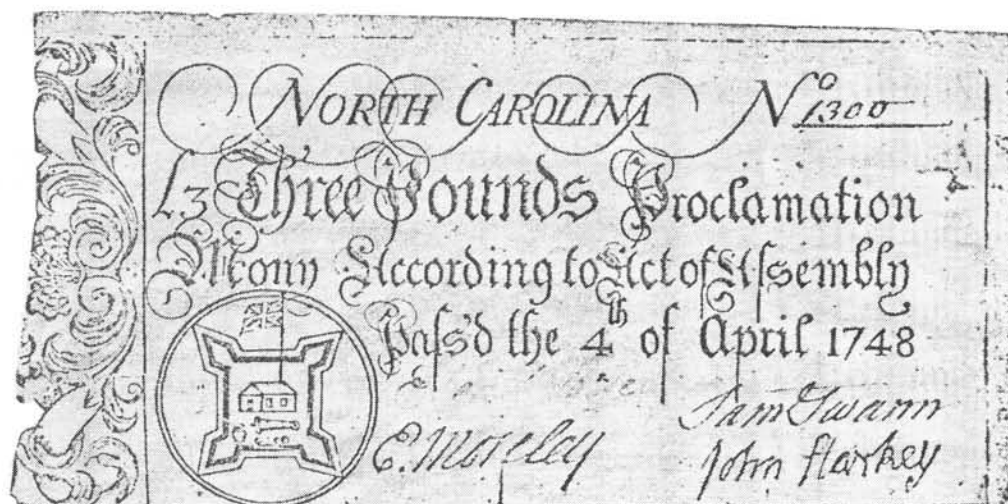 NORTH CAROLINA No 1300
L.3 Three Pounds Proclamation
Mony According to Act of Assembly
Pass'd the 4th of April 1748
Sam Swann
E. Moseley John Starkey